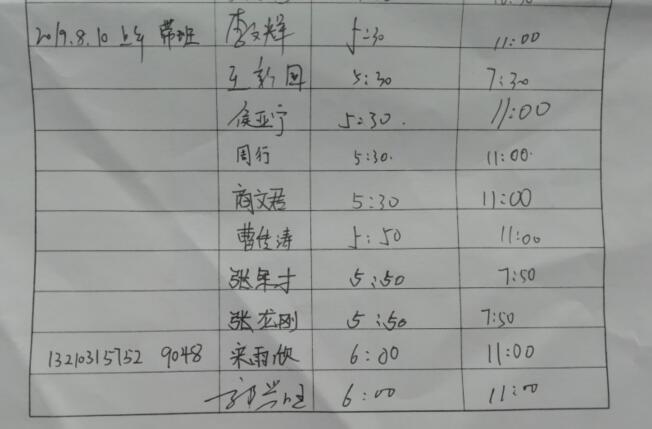 2019.8.10 上午 带班 李文辉 5:30 11:00
王新国 5:30 7:30
侯亚宁 5:30. 11:00
周行 5:30. 11:00.
商文君 5:30 11:00
曹传涛 5:50 11:00
张军才 5:50 7:50
张龙刚 5:50 7:50
13210315752 9048 宋雨欣 6:00 11:00
郭兴旺 6:00 11:00